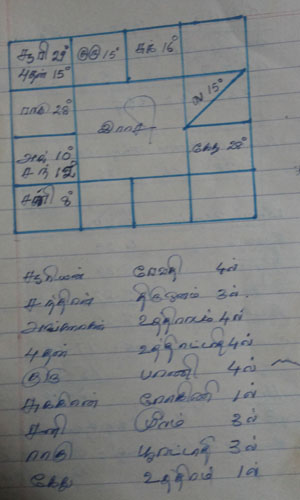 சூரி 29°
புதன் 15°
குரு 15°
சுக் 16°
ராகு 28°
ராசி
ல 15°
அவ் 10°
சந் 12°
கேது 28°
சனி 8°
சூரியன் ரேவதி 4ல்
சந்திரன் திருவோணம் 3ல்
அங்காரகன் உத்திராடம் 4ல்
புதன் உத்திரட்டாதி 4ல்
குரு பரணி 4ல்
சுக்கிரன் ரோகிணி 1ல்
சனி 3ல்
ராகு பூரட்டாதி 3ல்
கேது உத்திரம் 1ல்